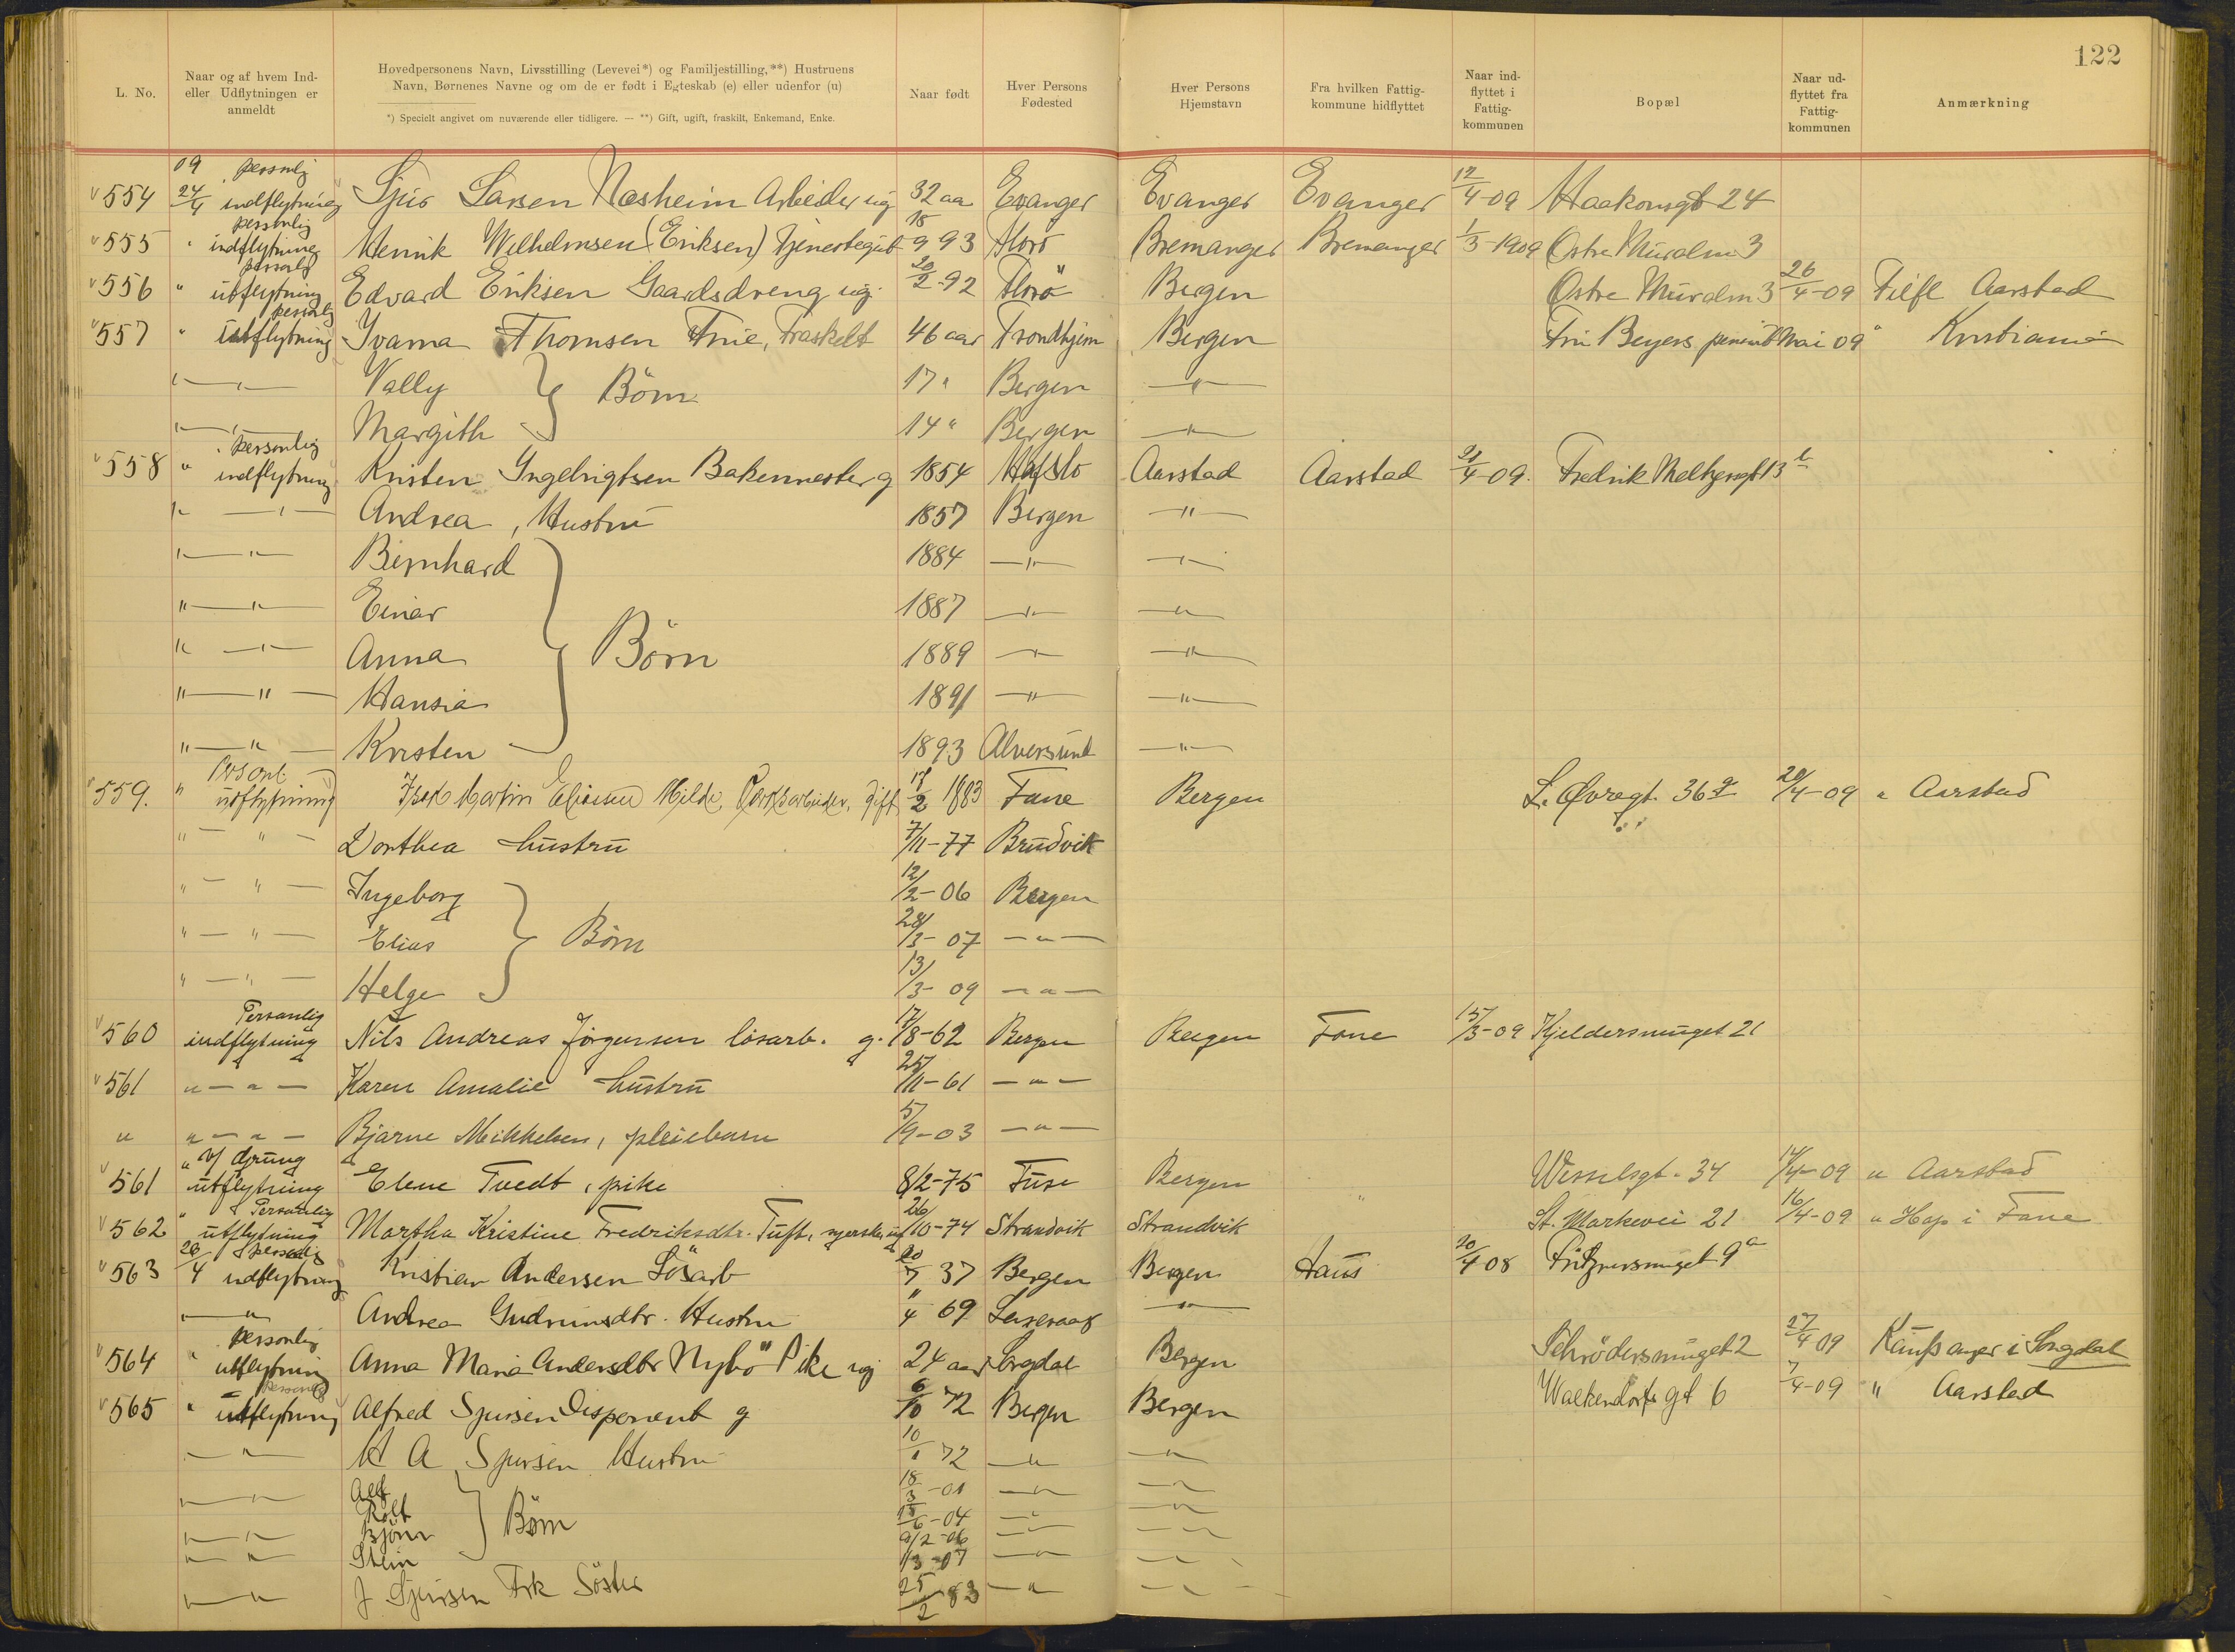 122
L. No.
Naar og af hvem Ind- eller Udflytningen er anmeldt
Hovedpersonens Navn, Livsstilling (Levevei*) og Familjestilling,**) Hustruens Navn, Børnenes Navne og om de er født i Egteskab (e) eller udenfor (u)
*) Specielt angivet om nuværende eller tidligere. — **) Gift, ugift, fraskilt, Enkemand, Enke.
Naar født
Hver Persons Fødested
Hver Persons Hjemstavn
Fra hvilken Fattig- kommune hidflyttet
Naar ind- flyttet i Fattig- kommunen
Bopæl
Naar ud- flyttet fra Fattig- kommunen
Anmærkning
09 personlig
554 24/4 indflytning Sjur Larsen Næsheim Arbeider ug 32 aa Evanger Evanger Evanger 12/4-09 Haakonsgt 24
personlig
555 " indflytning Henrik Wilhelmsen (Eriksen) Tjenestegut 18/9 93 Florö Bremanger Bremanger 1/3-1909 Østre Muralm 3
personlig
556 " utflytning Edvard Eriksen Gaardsdreng ug. 20/2-92 Florö Bergen Østre Muralm 3 26/4-09 Tilfl Aarstad
personlig
557 " utflytning Yvarna Thomsen Frue, Fraskelt 46 aar Trondhjem Bergen Fru Beyers Mai 09 " Kristiania
" " Vally } Börn 17 " Bergen "
" " Margith 14 " Bergen "
personlig
558 " indflytning Kristen Ingebrigtsen Bakermester g 1854 Hafslo Aarstad Aarstad 21/4-09. Fredrik Meltzersgt 13
" " Andrea, Hustru 1857 Bergen "
" " Bernhard 1884 " "
" " Einar 1887 " "
" " Anna } Börn 1889 " "
" " Hansia 1891 " "
" " Kristen 1893 Alversund "
Personl.
559. " utflytning Martin Milde, gift 17/2 1883 Fane Bergen L. Øvregt. 36 20/4-09 " Aarstad
" " Dorthea hustru 7/11-77 Brudvik
" " Ingeborg 12/2-06 Bergen
" " Elias } Börn 28/3-07 "
" " Helge 13/3-09 "
Personlig
560 indflytning Nils Andreas Jörgensen lösarb. g. 17/8-62 Bergen Bergen Fane 15/3-09 Kjeldersmuget 21
561 " " Karen Amalie hustru 25/11-61 "
" " " Bjarne Mikkelsen, pleiebarn 5/9-03 "
561 utflytning Elene Tvedt, pike 8/2-75 Fuse Bergen Wesselsgt. 34 14/4-09 " Aarstad
" Personlig
562 utflytning Martha Kristine Fredriksdtr. Tuft, syerske, ug 26/10-74 Strandvik Strandvik St. Markevei 21 16/4-09 " Hop i Fane
personlig
563 26/4 indflytning Kristian Andersen Lösarb 20/7 37 Bergen Bergen Haus 20/4 08 9a
" Andrea Gudrunsdtr. Hustru 11/4 69 "
personlig
564 " utflytning Anna Maria Andersdtr Nybö Pike ug 24 aar Sogdal Bergen Schrödersmuget 2 27/4 09 Kaupanger i Sogndal
personlig
565 " utflytning Alfred Sjursen Disponent g 6/10 72 Bergen Bergen Walkendorfs gt 6 7/4-09 " Aarstad
" " H A Sjursen Hustru 10/1 72 " "
" " Alf 18/3-01 " "
Rolf 18/6-04 " "
" " Björn } Börn 9/2-06 " "
" " Stein 1/3-07 " "
" " J Sjursen Frk Söster 25/2 83 " "